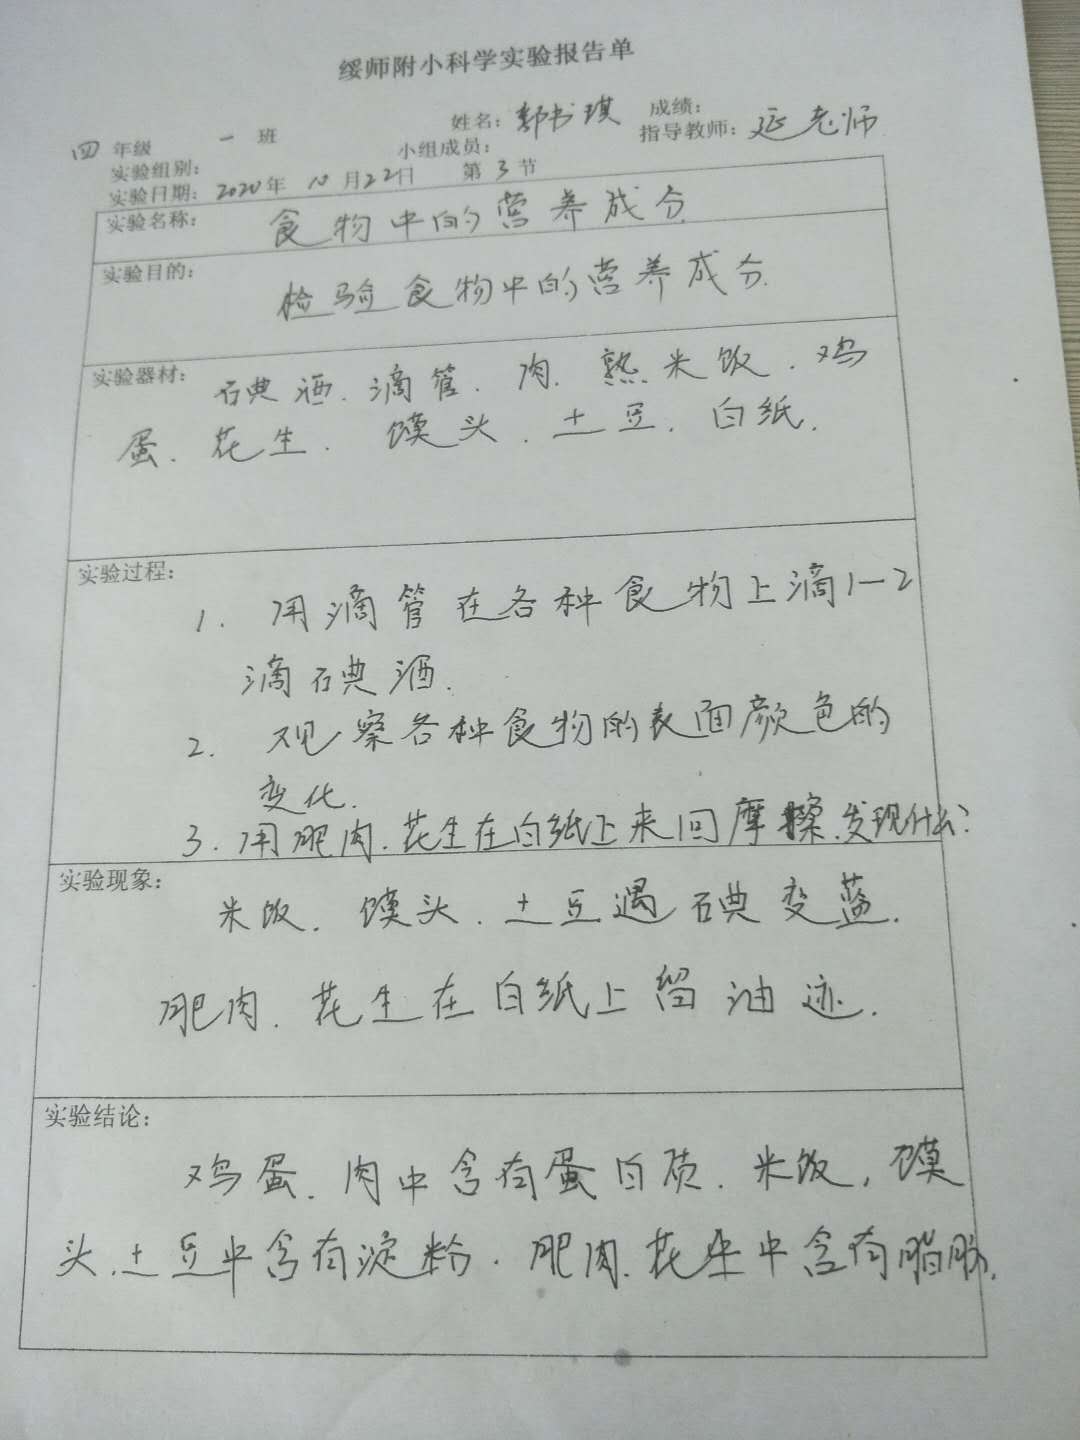 绥师附小科学实验报告单
四 年级 一 班 姓名：郭书琪 成绩：
实验组别： 小组成员： 指导教师：延老师
实验日期：2020年 10 月22日 第 3 节
实验名称： 食物中的营养成分
实验目的：
检验食物中的营养成分.
实验器材： 碘酒、滴管、肉、熟米饭、鸡
蛋、花生、馍头、土豆、白纸.
实验过程：
1. 用滴管在各种食物上滴1—2
滴碘酒.
2. 观察各种食物的表面颜色的
变化.
3. 用肥肉、花生在白纸上来回摩擦、发现什么？
实验现象：
米饭、馍头、土豆遇碘变蓝.
肥肉、花生在白纸上留油迹.
实验结论：
鸡蛋、肉中含有蛋白质、米饭，馍
头、土豆中含有淀粉. 肥肉、花生中含有脂肪.